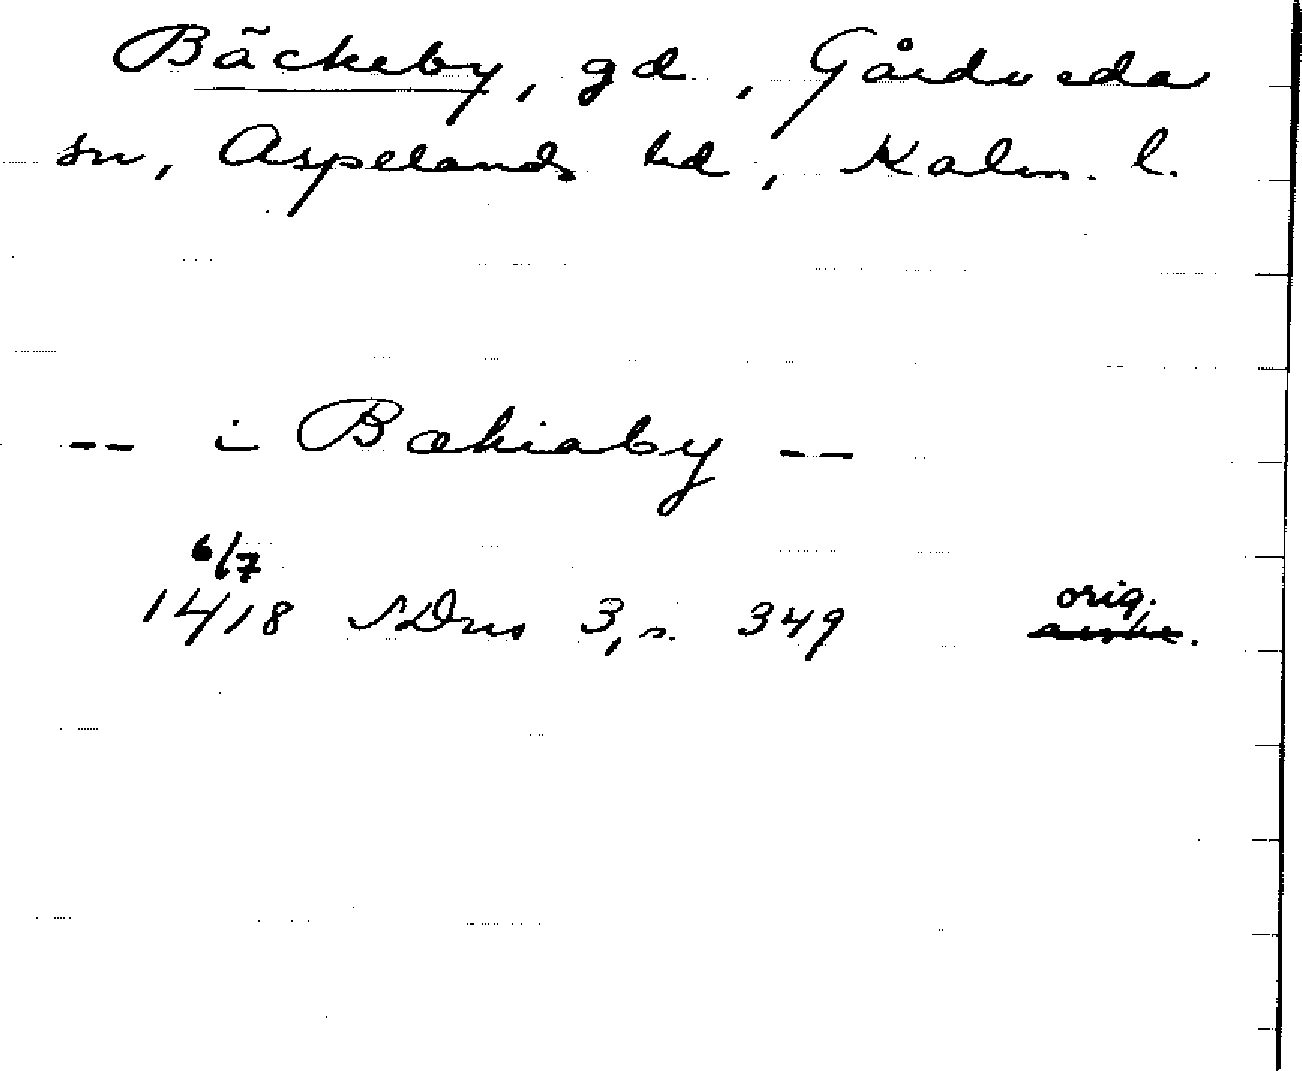 Bäckeby, gd, Gårdveda
sn, Aspelands hd, Kalm. l.
-- i Bækiaby --
6/7
1418 SDns 3, s. 349 orig.